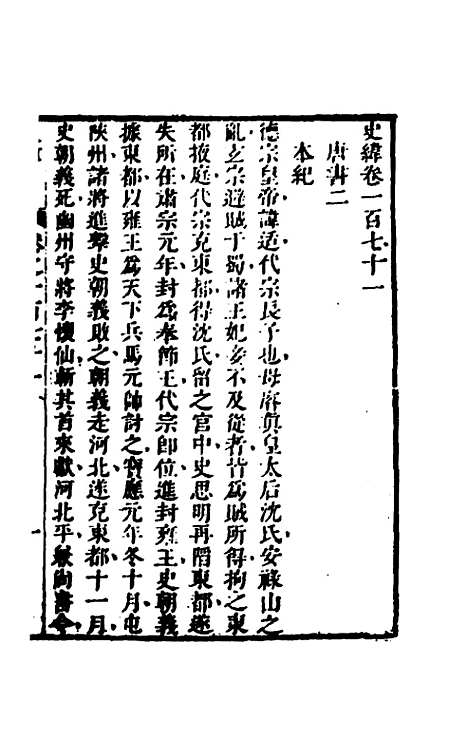 史緯卷一百七十一
唐書二
本紀
德宗皇帝諱适代宗長子也母睿真皇太后沈氏安祿山之
亂玄宗避賊于蜀諸王妃妾不及從者皆為賊所得拘之東
都掖庭代宗克東都得沈氏留之宮中史思明再陷東都遂
失所在肅宗元年封為奉節王代宗即位進封雍王史朝義
據東都以雍王為天下兵馬元帥討之寶應元年冬十月屯
陝州諸將進擊史朝義敗之朝義走河北遂克東都十一月
史朝義死幽州守將李懷仙斬其首來獻河北平以尚書令